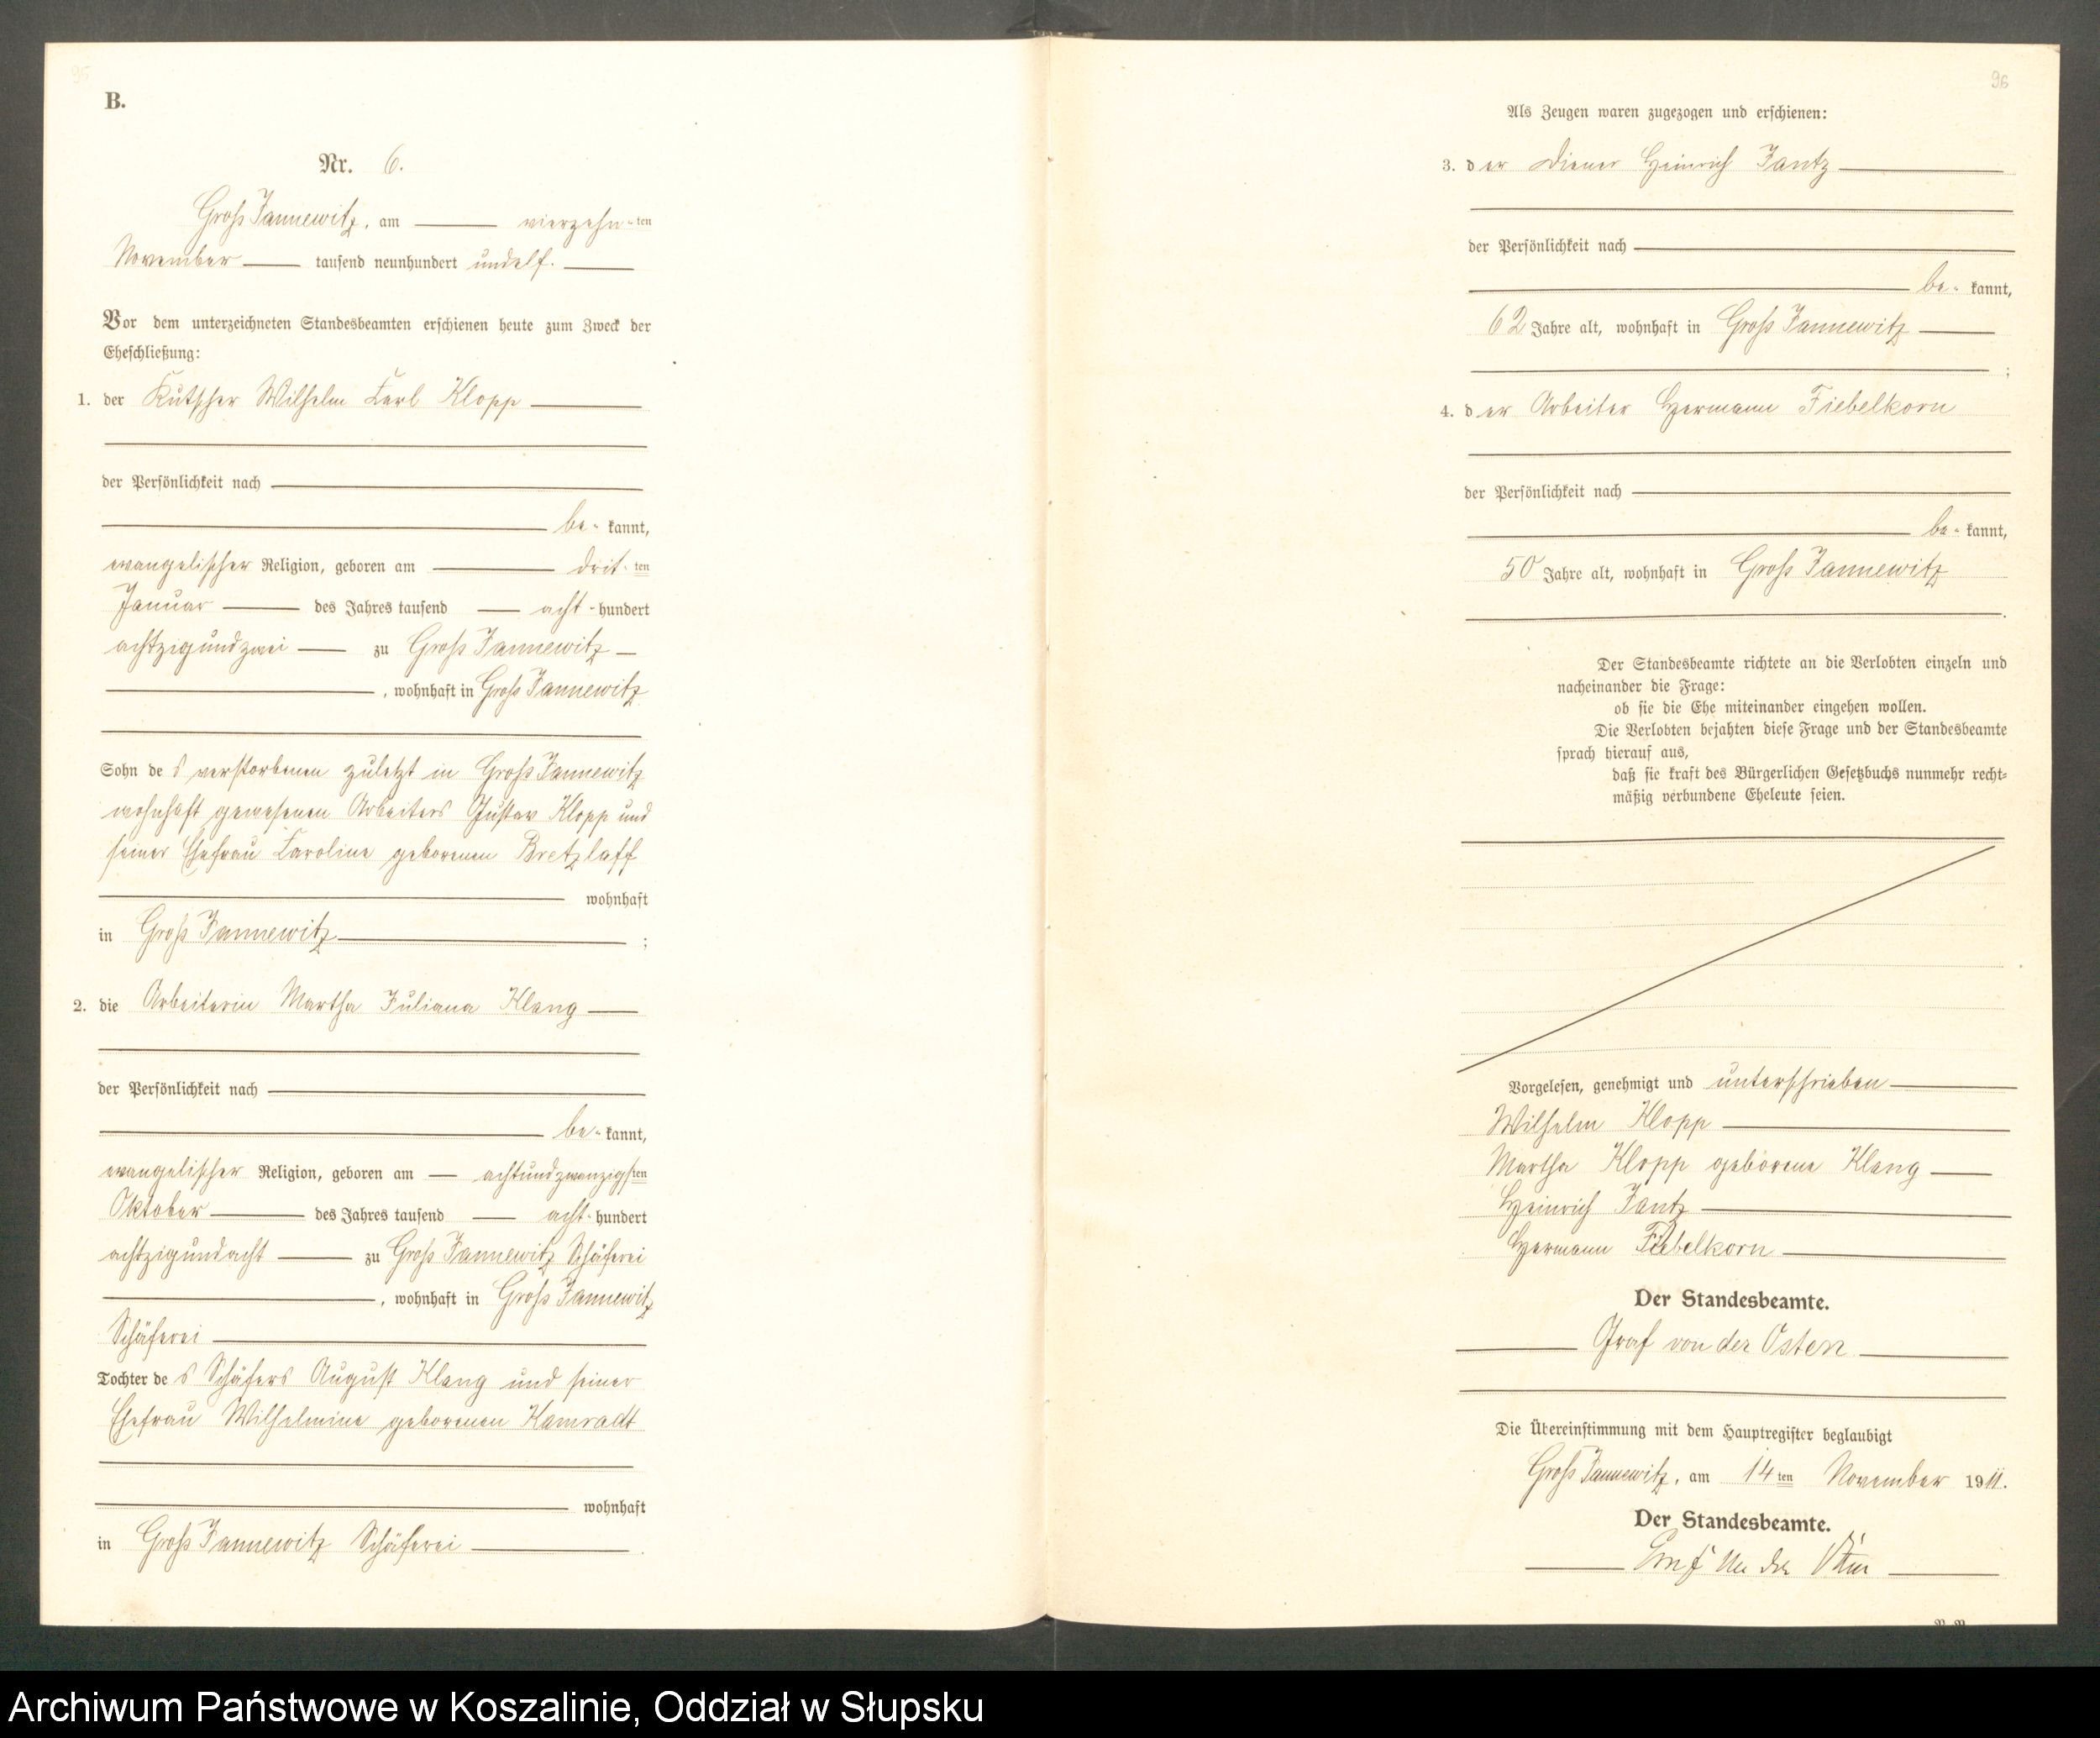 95
B.
Nr. 6.
Groß Jannewitz, am vierzehn-ten
November tausend neunhundert undelf.
Vor dem unterzeichneten Standesbeamten erschienen heute zum Zweck der
Eheschließung:
1. der Kutscher Wilhelm Carl Klopp
der Persönlichkeit nach
be- kannt,
evangelischer Religion, geboren am drit- ten
Januar des Jahres tausend acht - hundert
achtzigundzwei zu Groß Jannewitz
, wohnhaft in Groß Jannewitz
Sohn de s verstorbenen zuletzt in Groß Jannewitz
wohnhaft gewesenen Arbeiters Gustav Klopp und
seiner Ehefrau Caroline geborenen Bretzlaff
wohnhaft
in Groß Jannewitz ;
2. die Arbeiterin Martha Juliana Klang
der Persönlichkeit nach
be- kannt,
evangelischer Religion, geboren am achtundzwanzigsten
Oktober des Jahres tausend acht- hundert
achtzigundacht zu Groß Jannewitz Schäferei
, wohnhaft in Groß Jannewitz
Schäferei
Tochter de s Schäfers August Klang und seiner
Ehefrau Wilhelmine geborenen Kamradt
wohnhaft
in Groß Jannewitz Schäferei .
96
Als Zeugen waren zugezogen und erschienen:
3. d er Diener Heinrich Jantz
der Persönlichkeit nach
be- kannt,
62 Jahre alt, wohnhaft in Groß Jannewitz
;
4. d er Arbeiter Hermann Fiebelkorn
der Persönlichkeit nach
be- kannt,
50 Jahre alt, wohnhaft in Groß Jannewitz
.
Der Standesbeamte richtete an die Verlobten einzeln und
nacheinander die Frage:
ob sie die Ehe miteinander eingehen wollen.
Die Verlobten bejahten diese Frage und der Standesbeamte
sprach hierauf aus,
daß sie kraft des Bürgerlichen Gesetzbuchs nunmehr recht-
mäßig verbundene Eheleute seien.
Vorgelesen, genehmigt und unterschrieben
Wilhelm Klopp
Martha Klopp geborene Klang
Heinrich Jantz
Hermann Fiebelkorn
Der Standesbeamte.
Graf von der Osten
Die Übereinstimmung mit dem Hauptregister beglaubigt
Groß Jannewitz, am 14 ten November 1911.
Der Standesbeamte.
Graf von der Osten
Archiwum Państwowe w Koszalinie, Oddział w Słupsku